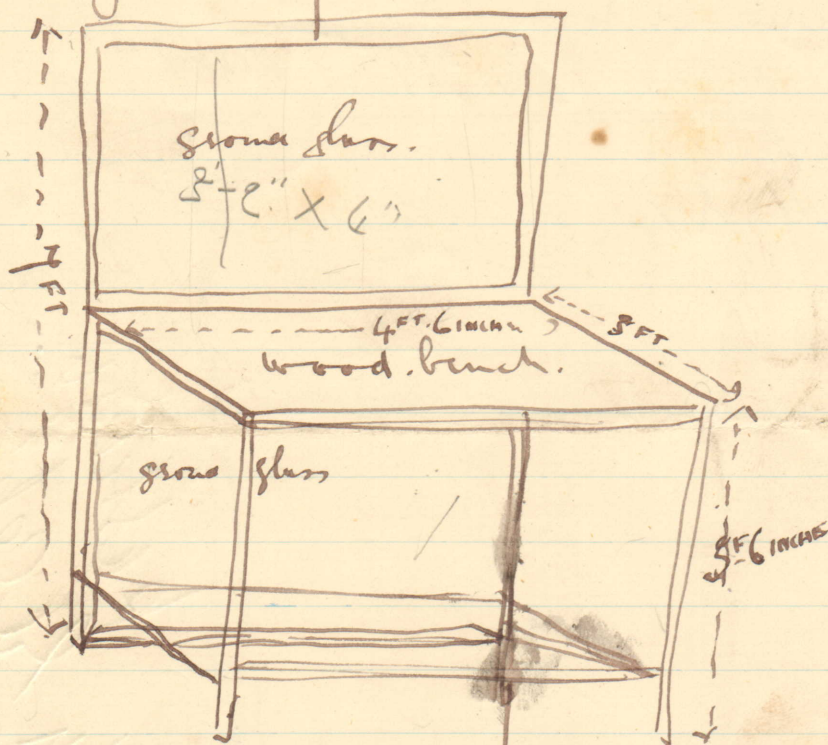 ground glass.
4 FT. 6 INCHES
3 FT
wood. bench.
ground glass
FT
6 INCHES